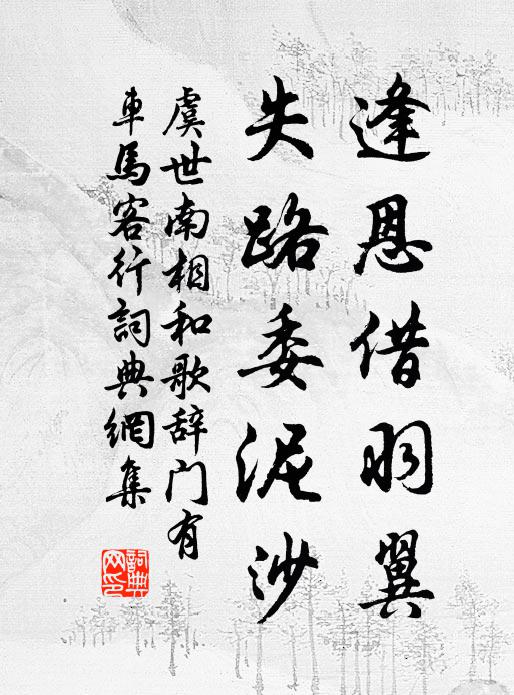 逢恩借羽翼
失路委泥沙
虞世南相和歌辞门有
车馬客行詞典網集
詞典
网印